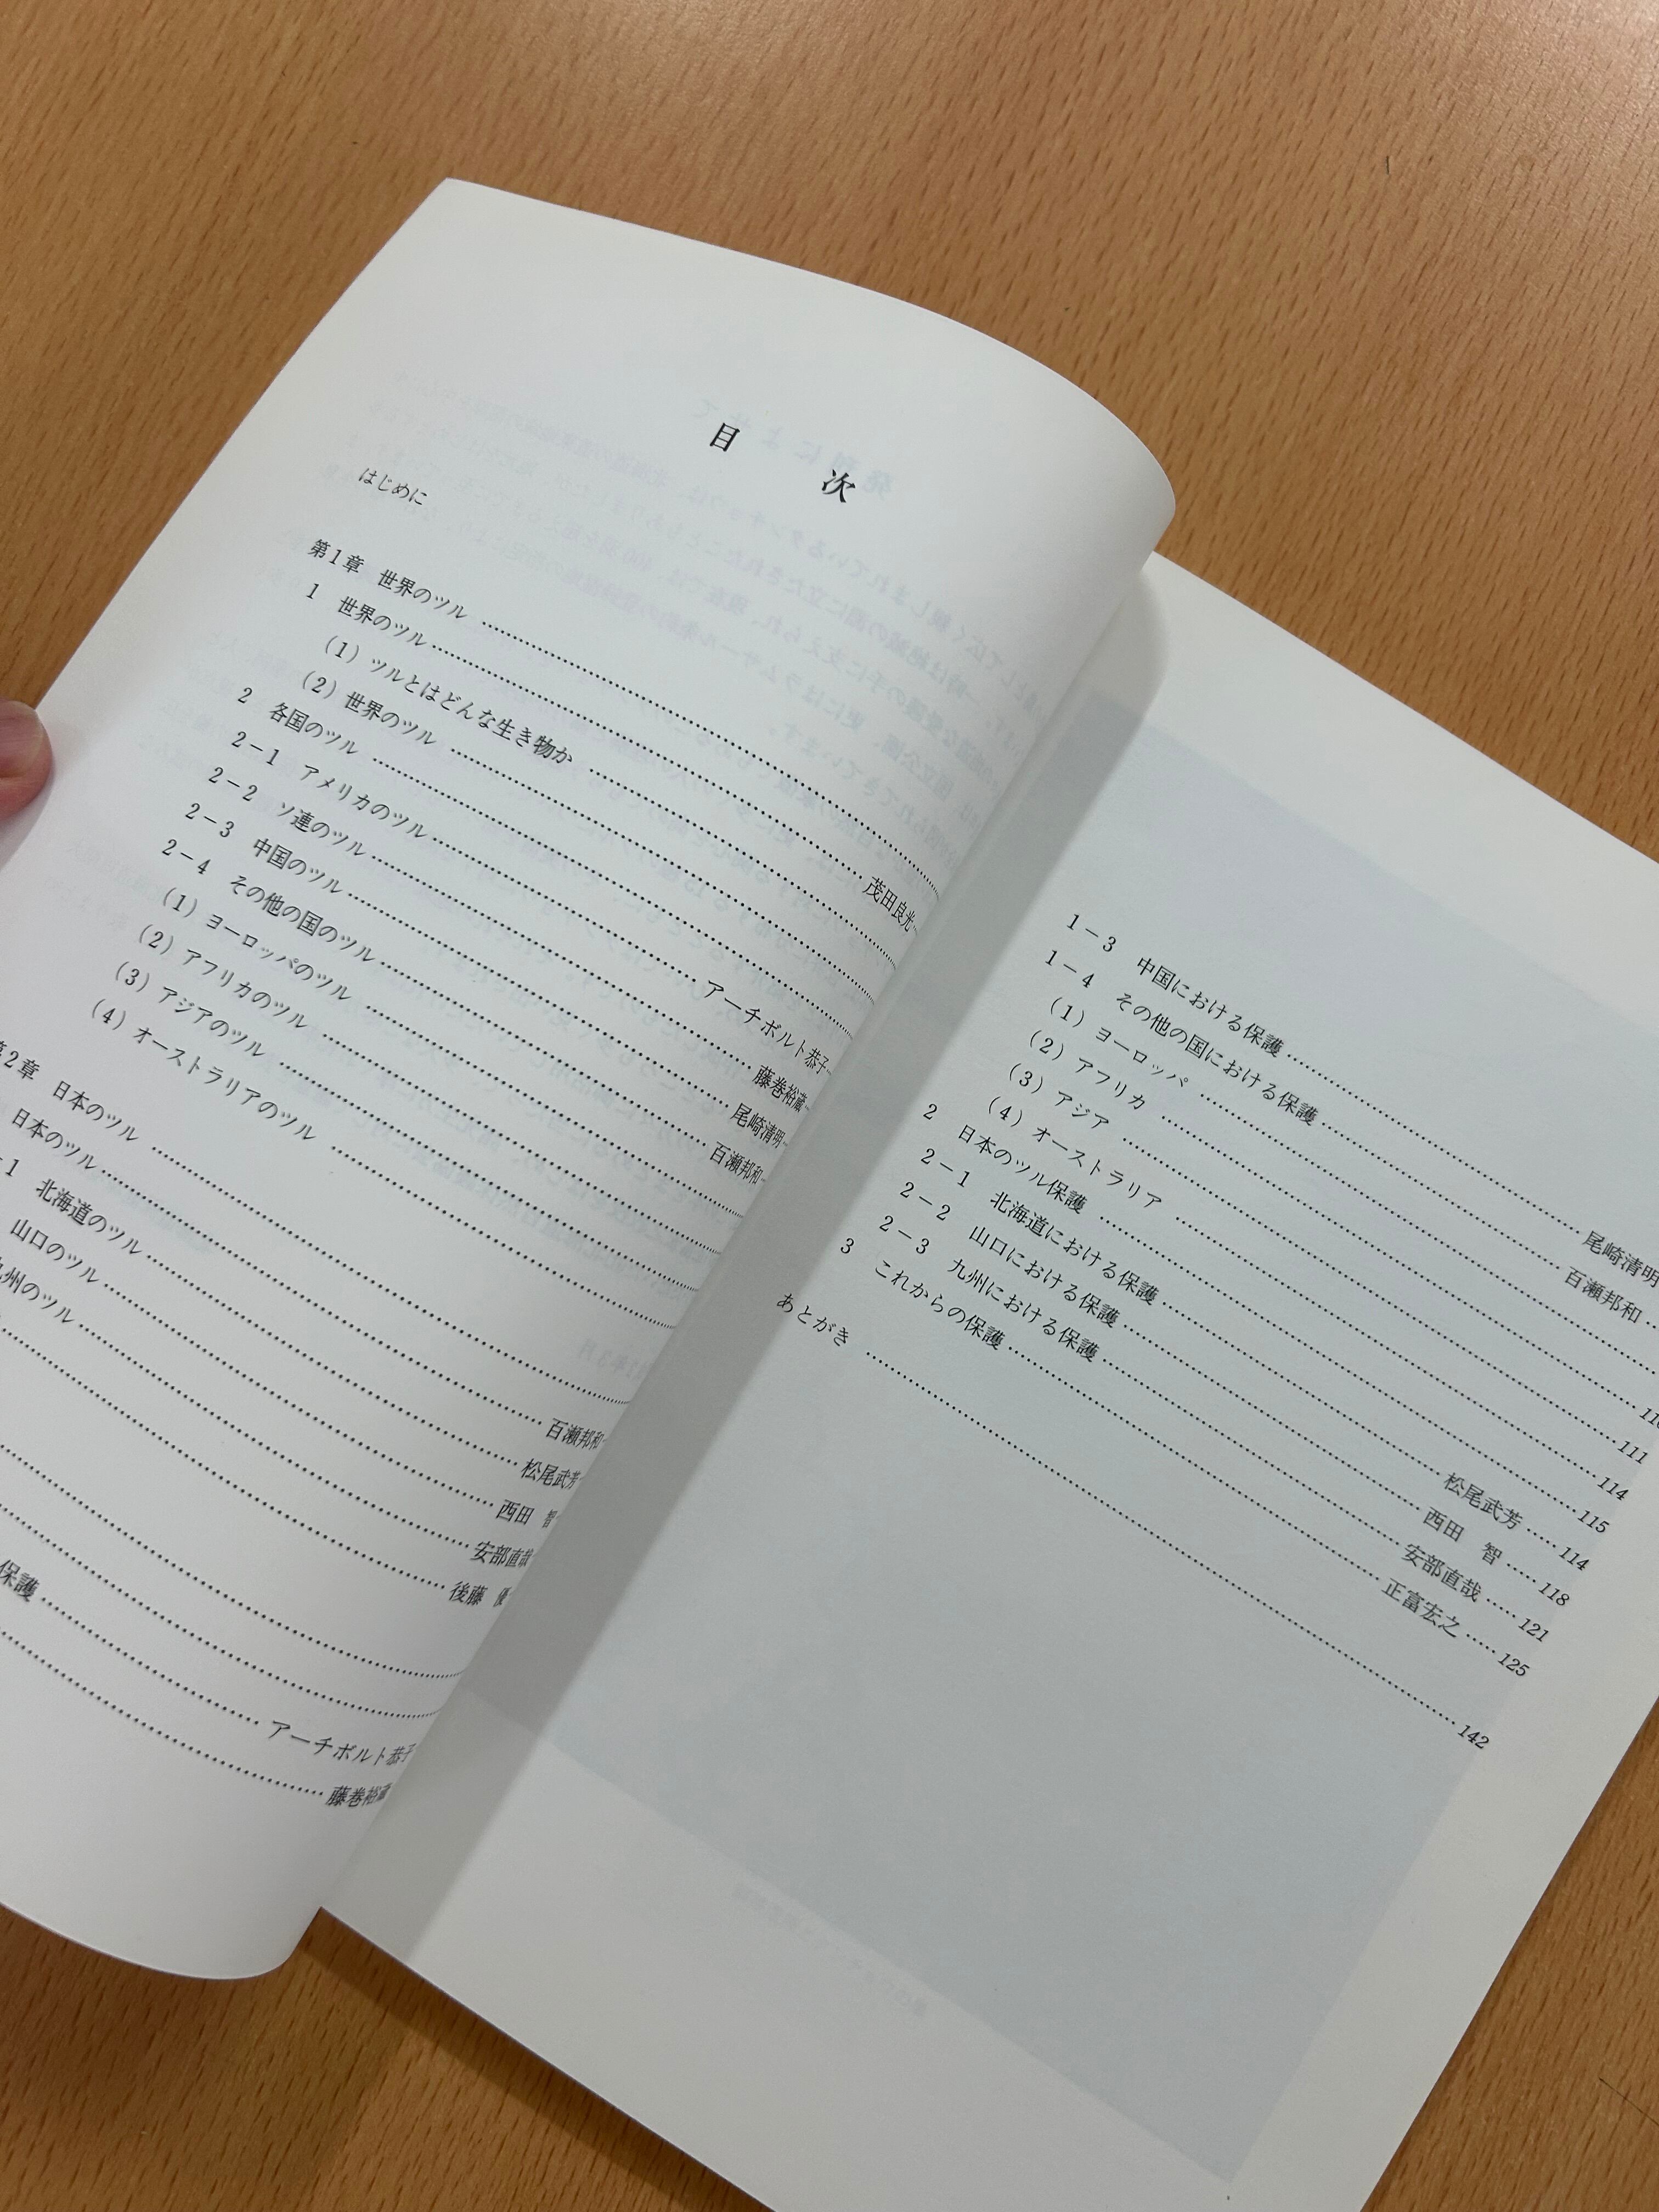 目　次
はじめに
第1章　世界のツル ……
1　世界のツル ……
(1) ツルとはどんな生き物か …… 茂田良光
(2) 世界のツル ……
2　各国のツル ……
2－1　アメリカのツル …… アーチボルト恭子
2－2　ソ連のツル …… 藤巻裕蔵
2－3　中国のツル …… 尾崎清明
2－4　その他の国のツル …… 百瀬邦和
(1) ヨーロッパのツル ……
(2) アフリカのツル ……
(3) アジアのツル ……
(4) オーストラリアのツル ……
第2章　日本のツル ……
日本のツル …… 百瀬邦和
1　北海道のツル …… 松尾武芳
山口のツル …… 西田　智
九州のツル …… 安部直哉
…… 後藤　優
保護 …… アーチボルト恭子
…… 藤巻裕蔵
1－3　中国における保護 …… 尾崎清明
1－4　その他の国における保護 …… 百瀬邦和 ……
(1) ヨーロッパ ……
(2) アフリカ ……
(3) アジア …… 111
(4) オーストラリア …… 114
2　日本のツル保護 …… 115
2－1　北海道における保護 …… 松尾武芳 …… 114
2－2　山口における保護 …… 西田　智 …… 118
2－3　九州における保護 …… 安部直哉 …… 121
3　これからの保護 …… 正富宏之 …… 125
あとがき …… 142